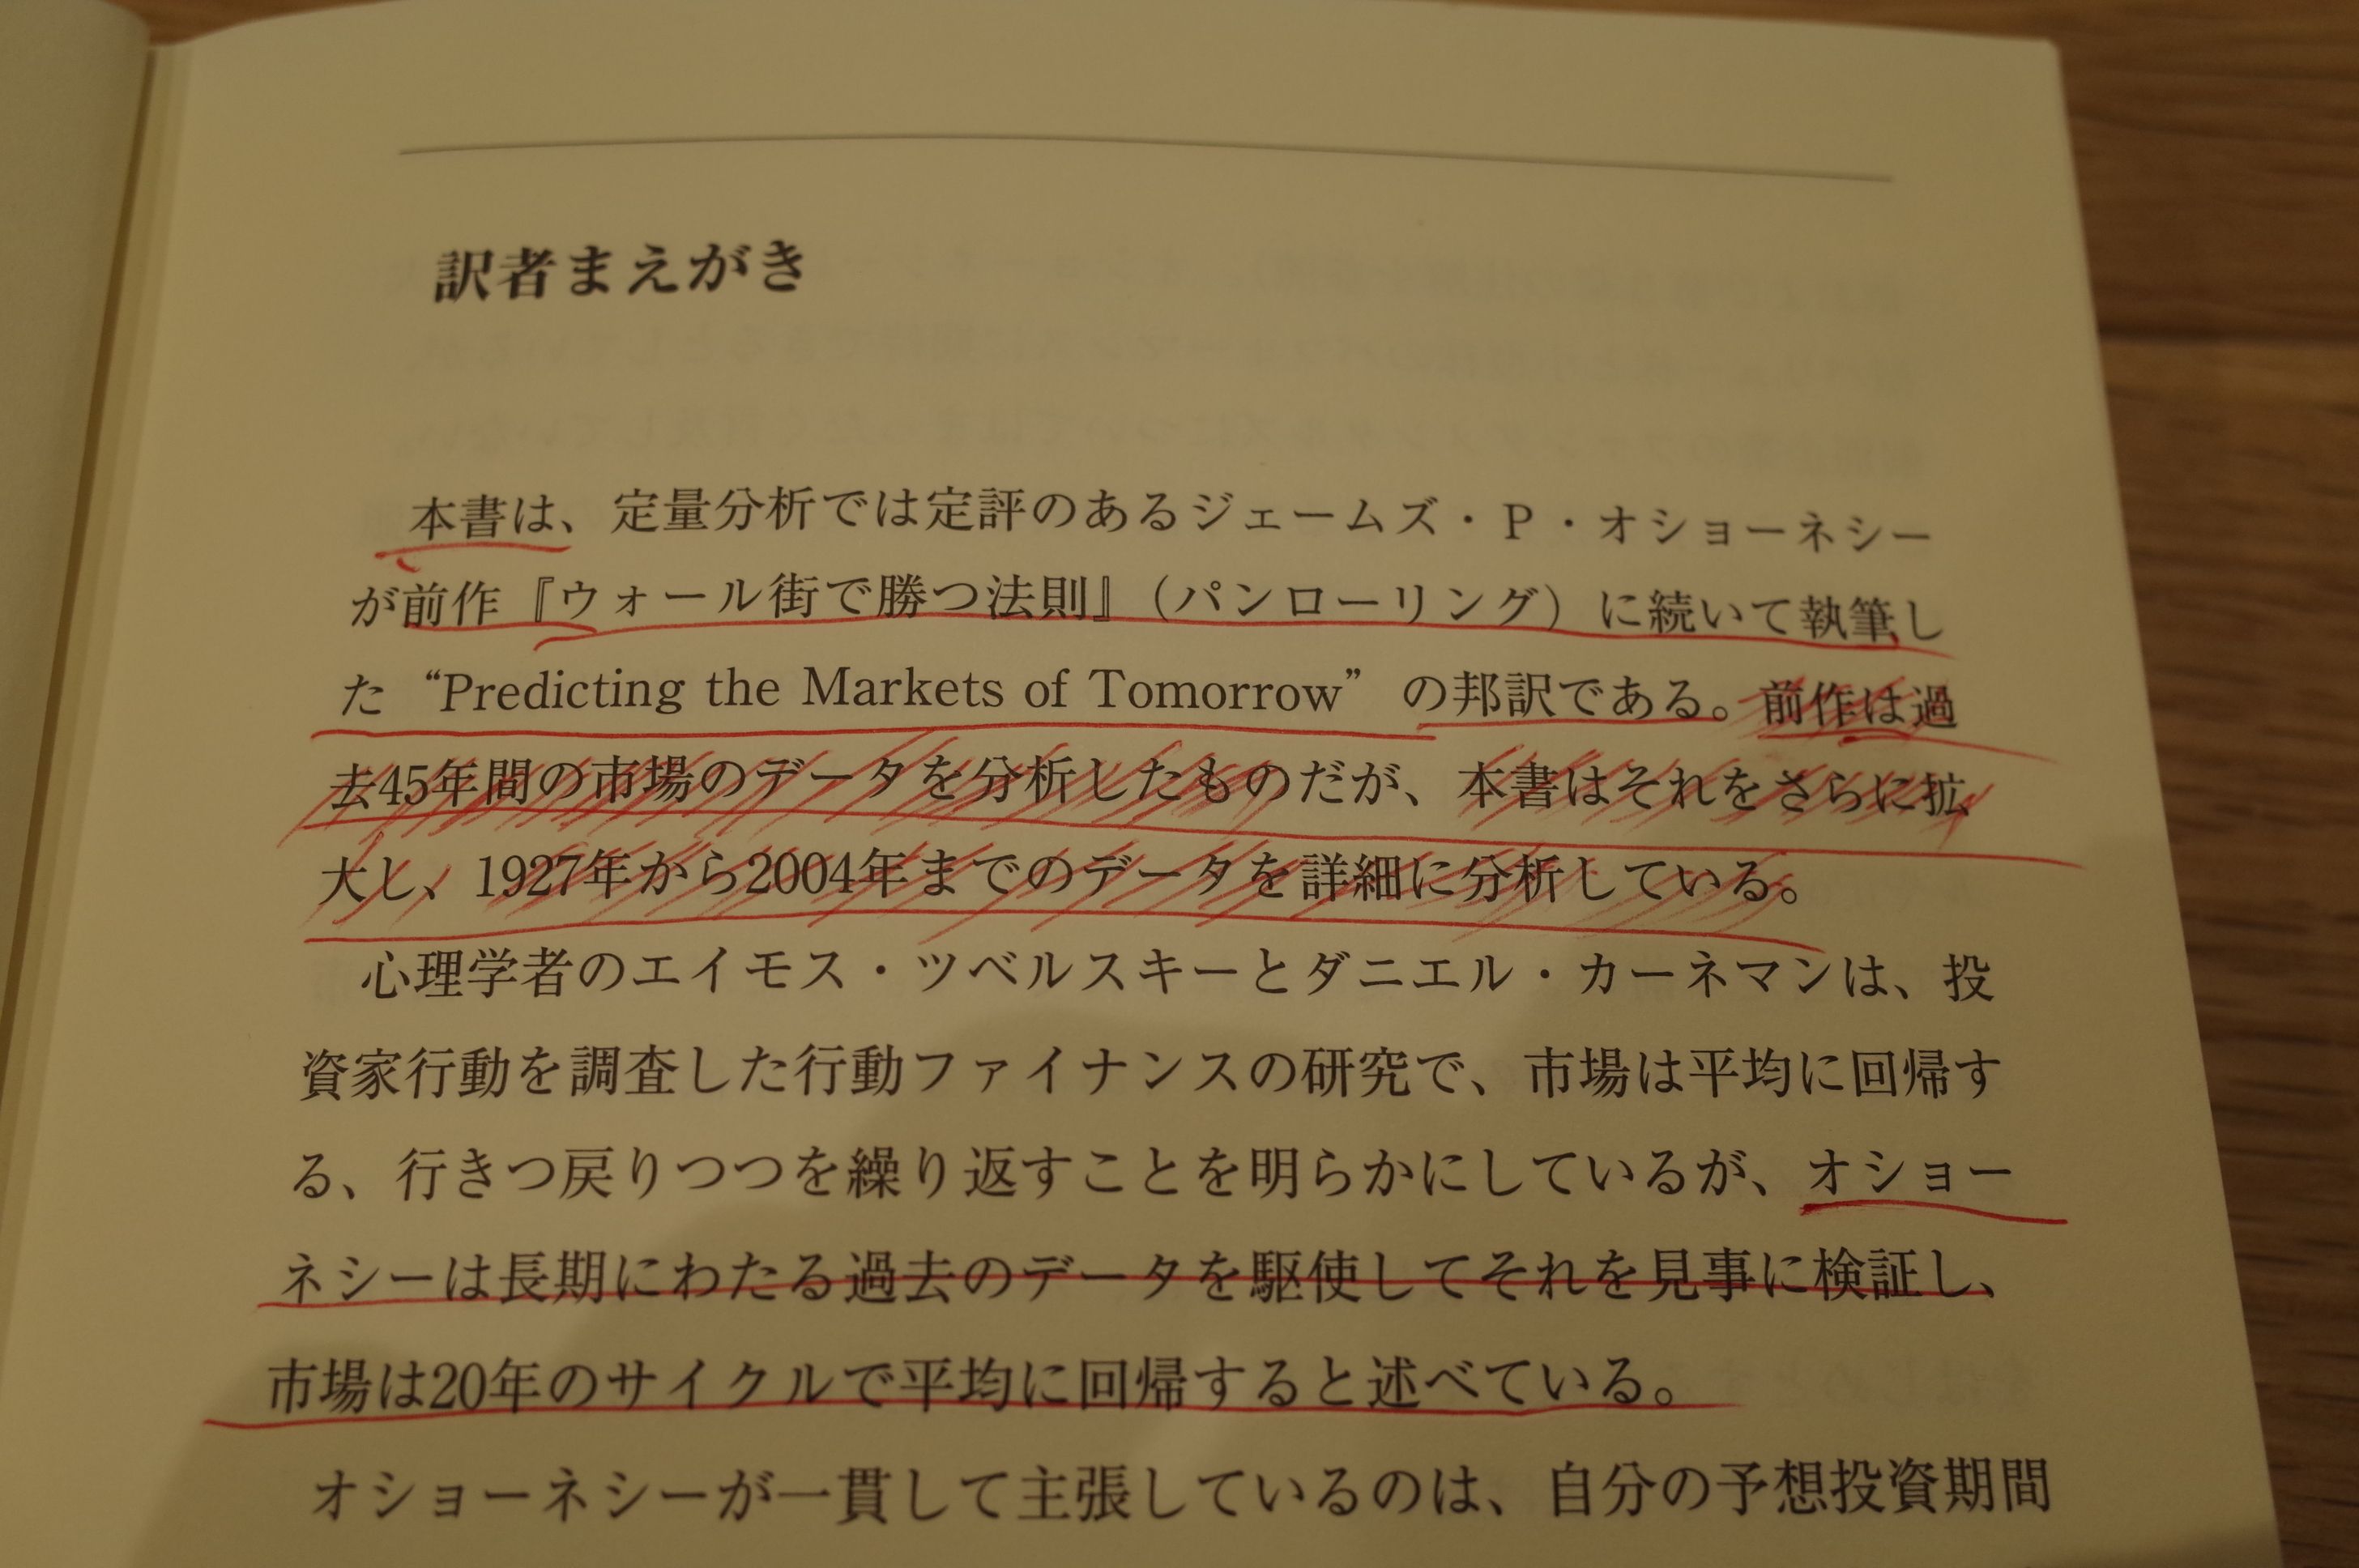 訳者まえがき
本書は、定量分析では定評のあるジェームズ・P・オショーネシー
が前作『ウォール街で勝つ法則』（パンローリング）に続いて執筆し
た“Predicting the Markets of Tomorrow”の邦訳である。前作は過
去45年間の市場のデータを分析したものだが、本書はそれをさらに拡
大し、1927年から2004年までのデータを詳細に分析している。
心理学者のエイモス・ツベルスキーとダニエル・カーネマンは、投
資家行動を調査した行動ファイナンスの研究で、市場は平均に回帰す
る、行きつ戻りつつを繰り返すことを明らかにしているが、オショー
ネシーは長期にわたる過去のデータを駆使してそれを見事に検証し、
市場は20年のサイクルで平均に回帰すると述べている。
オショーネシーが一貫して主張しているのは、自分の予想投資期間